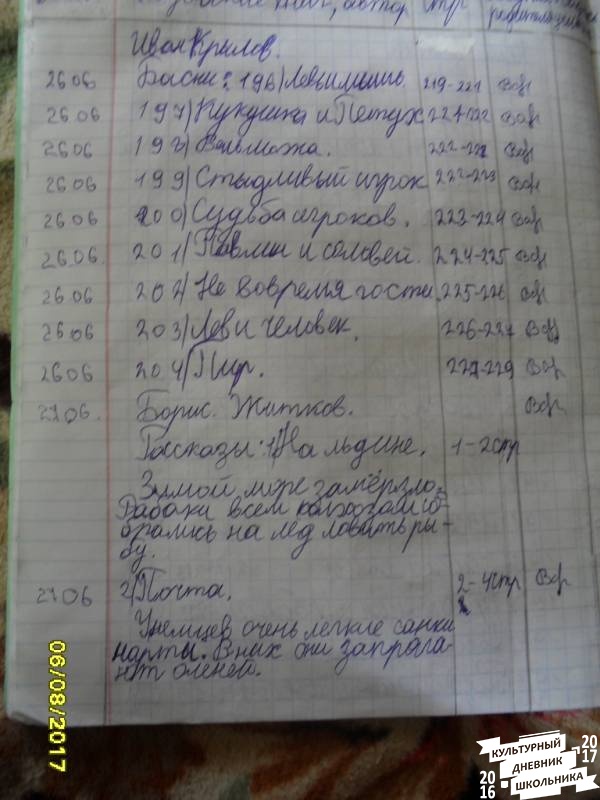 книг, автор стр
Иван Крылов.
26 06 Басни: 196) Лев и мышь. 219-221
26 06 197) Кукушка и Петух 221-222
26 06 198) Вельможа. 222-222
26 06 199) Стыдливый игрок 222-223
26 06 200) Судьба игроков. 223-224
26 06. 201) Павлин и соловей. 224-225
26 06 202) Не вовремя гости 225-226
26 06 203) Лев и человек. 226-227
26 06 204) Пир. 227-229
27 06. Борис Житков.
Рассказы: 1) На льдине. 1-2 стр
Зимой море замёрзло.
Рабаки всем колхозам со-
брались на лёд ловить ры-
бу.
27 06 2) Почта. 2-4 стр
У немцев очень лёгкие санки
нарты. В них они запряга-
ют оленей.
06/08/2017
КУЛЬТУРНЫЙ
ДНЕВНИК
ШКОЛЬНИКА
2016
2017